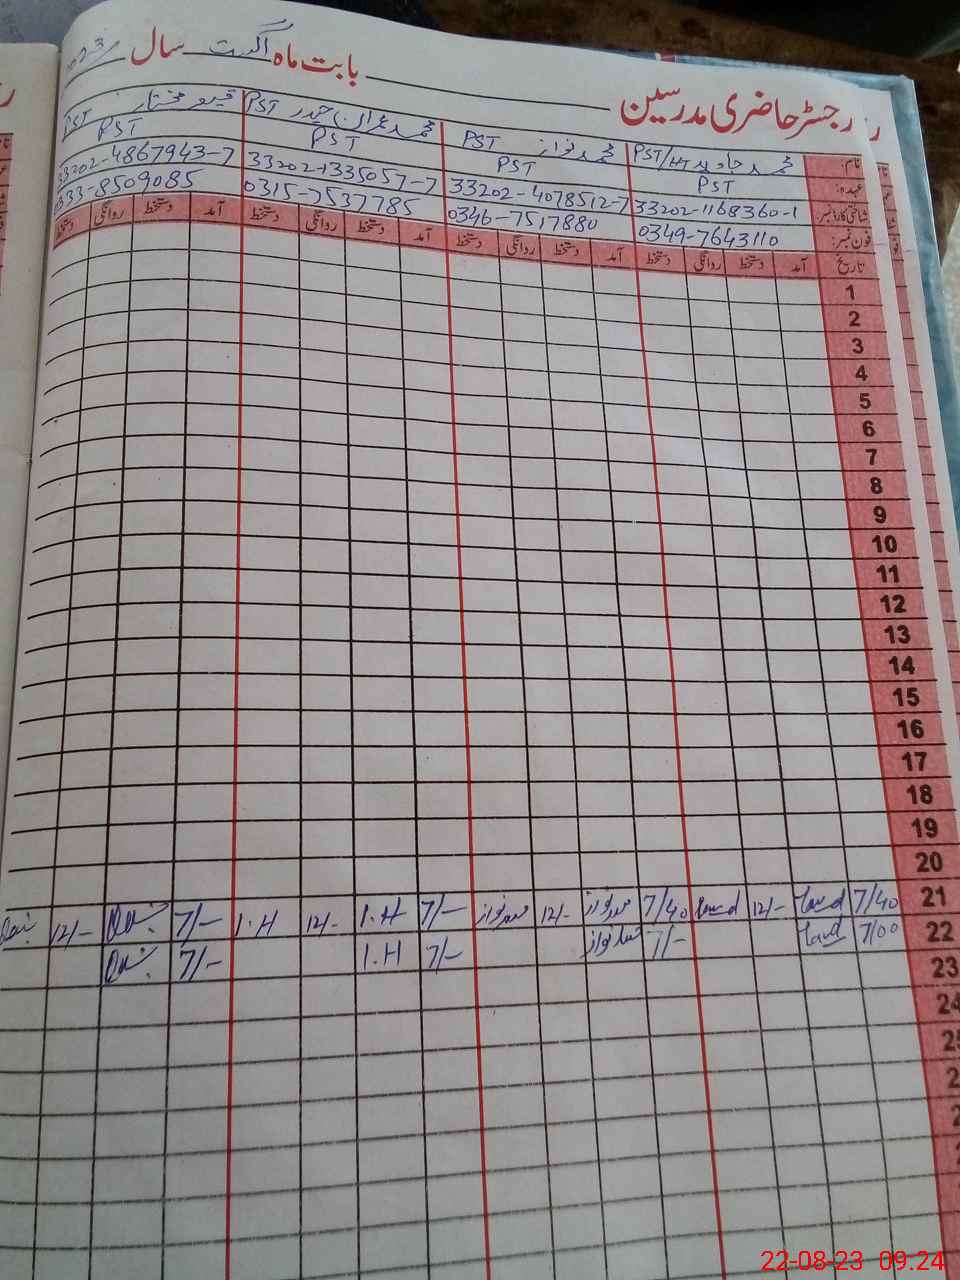 رجسٹر حاضری مدرسین بابت ماہ اگست سال 2023
نام: محمد جاوید PST/HT محمد نواز PST محمد عمران حیدر PST قیصر مختار PST
عہدہ: PST PST PST PST
شناختی کارڈ نمبر 33202-1168360-1 33202-4078512-7 33202-1335057-7 33202-4867943-7
فون نمبر: 0349-7643110 0346-7517880 0315-7537785 0333-8509085
تاریخ آمد دستخط روانگی دستخط آمد دستخط روانگی دستخط آمد دستخط روانگی دستخط آمد دستخط روانگی دستخط
1
2
3
4
5
6
7
8
9
10
11
12
13
14
15
16
17
18
19
20
21 7/40 Javed 12/- Javed 7/40 محمد نواز 12/- محمد نواز 7/- I.H 12/- I.H 7/- 12/-
22 7/00 Javed 7/- محمد نواز 7/- I.H 7/-
23
24
25
22-08-23 09.24